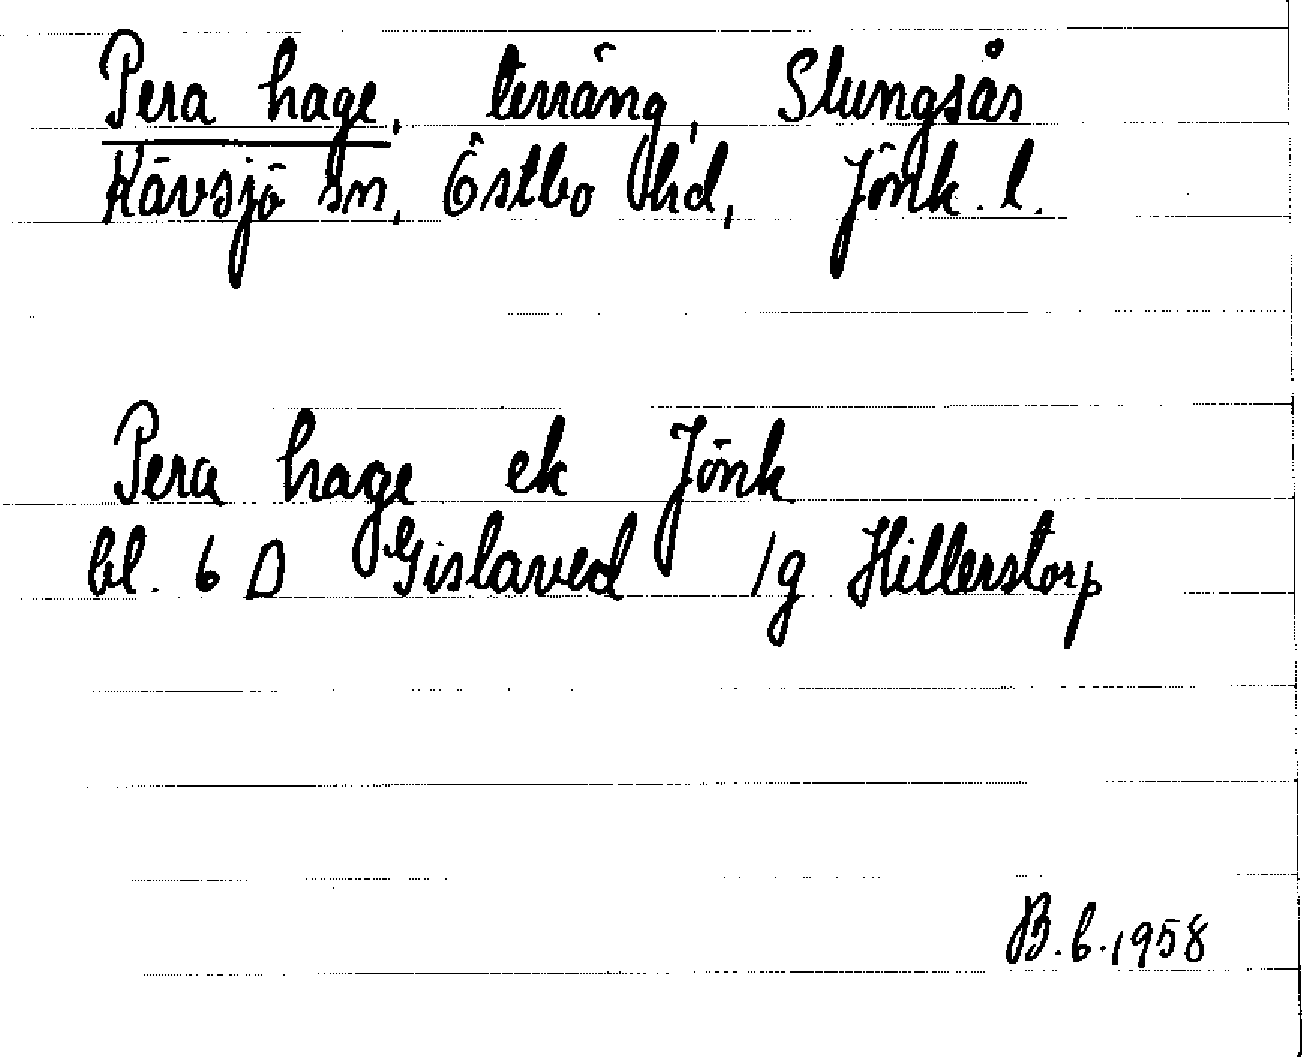 Pera hage, terräng, Slungsås
Kävsjö sn, Östbo hd, Jönk. l.
Pera hage ek Jönk
bl. 6 D Gislaved 1g Hillerstorp
B.6.1958